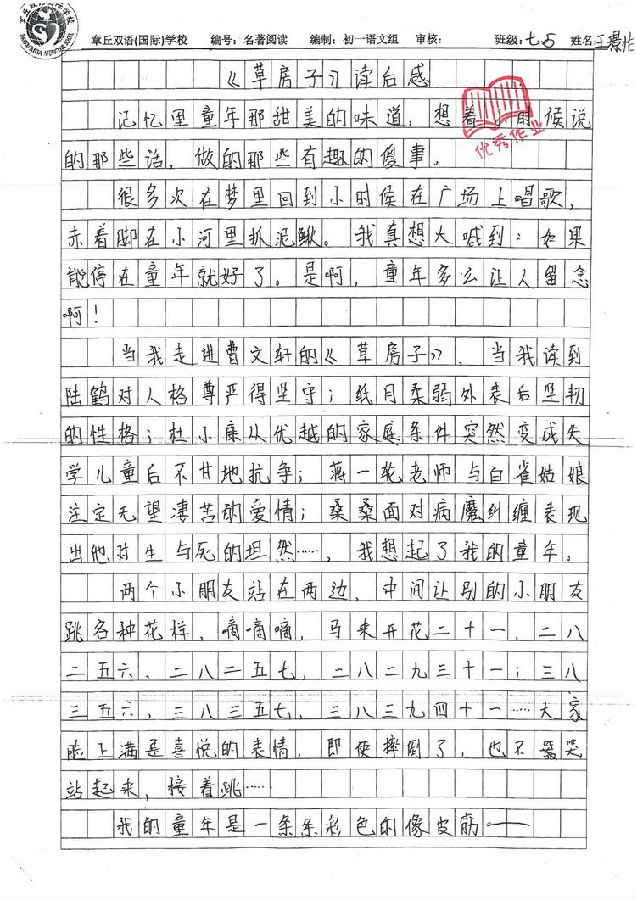 章丘双语(国际)学校 编号:名著阅读 编制:初一语文组 审核: 班级:七.5 姓名:王
《草房子》读后感
优秀作业
记忆里童年那甜美的味道,想着 时候说
的那些话,做的那些有趣的傻事。
很多次在梦里回到小时侯在广场上唱歌,
赤着脚在小河里抓泥鳅。我真想大喊到:如果
能停在童年就好了。是啊,童年多么让人留念
啊!
当我走进曹文轩的《草房子》,当我读到
陆鹤对人格尊严得坚守;纸月柔弱外表后坚韧
的性格;杜小康从优越的家庭条件突然变成失
学儿童后不甘地抗争;蒋一轮老师与白雀姑娘
注定无望凄苦的爱情;桑桑面对病魔到缠表现
出他对生与死的坦然……,我想起了我的童年。
两个小朋友站在两边,中间让别的小朋友
跳各种花样,嘀嘀嘀,马来开花二十一,二八
二五六,二八二五七,二八二九三十一;三八
三五六,三八三五七,三八三九四十一……大家
脸上满是喜说的表情,即使摔倒了,也不 哭
站起来,接着跳……
我的童年是一条条彩色的像皮筋——